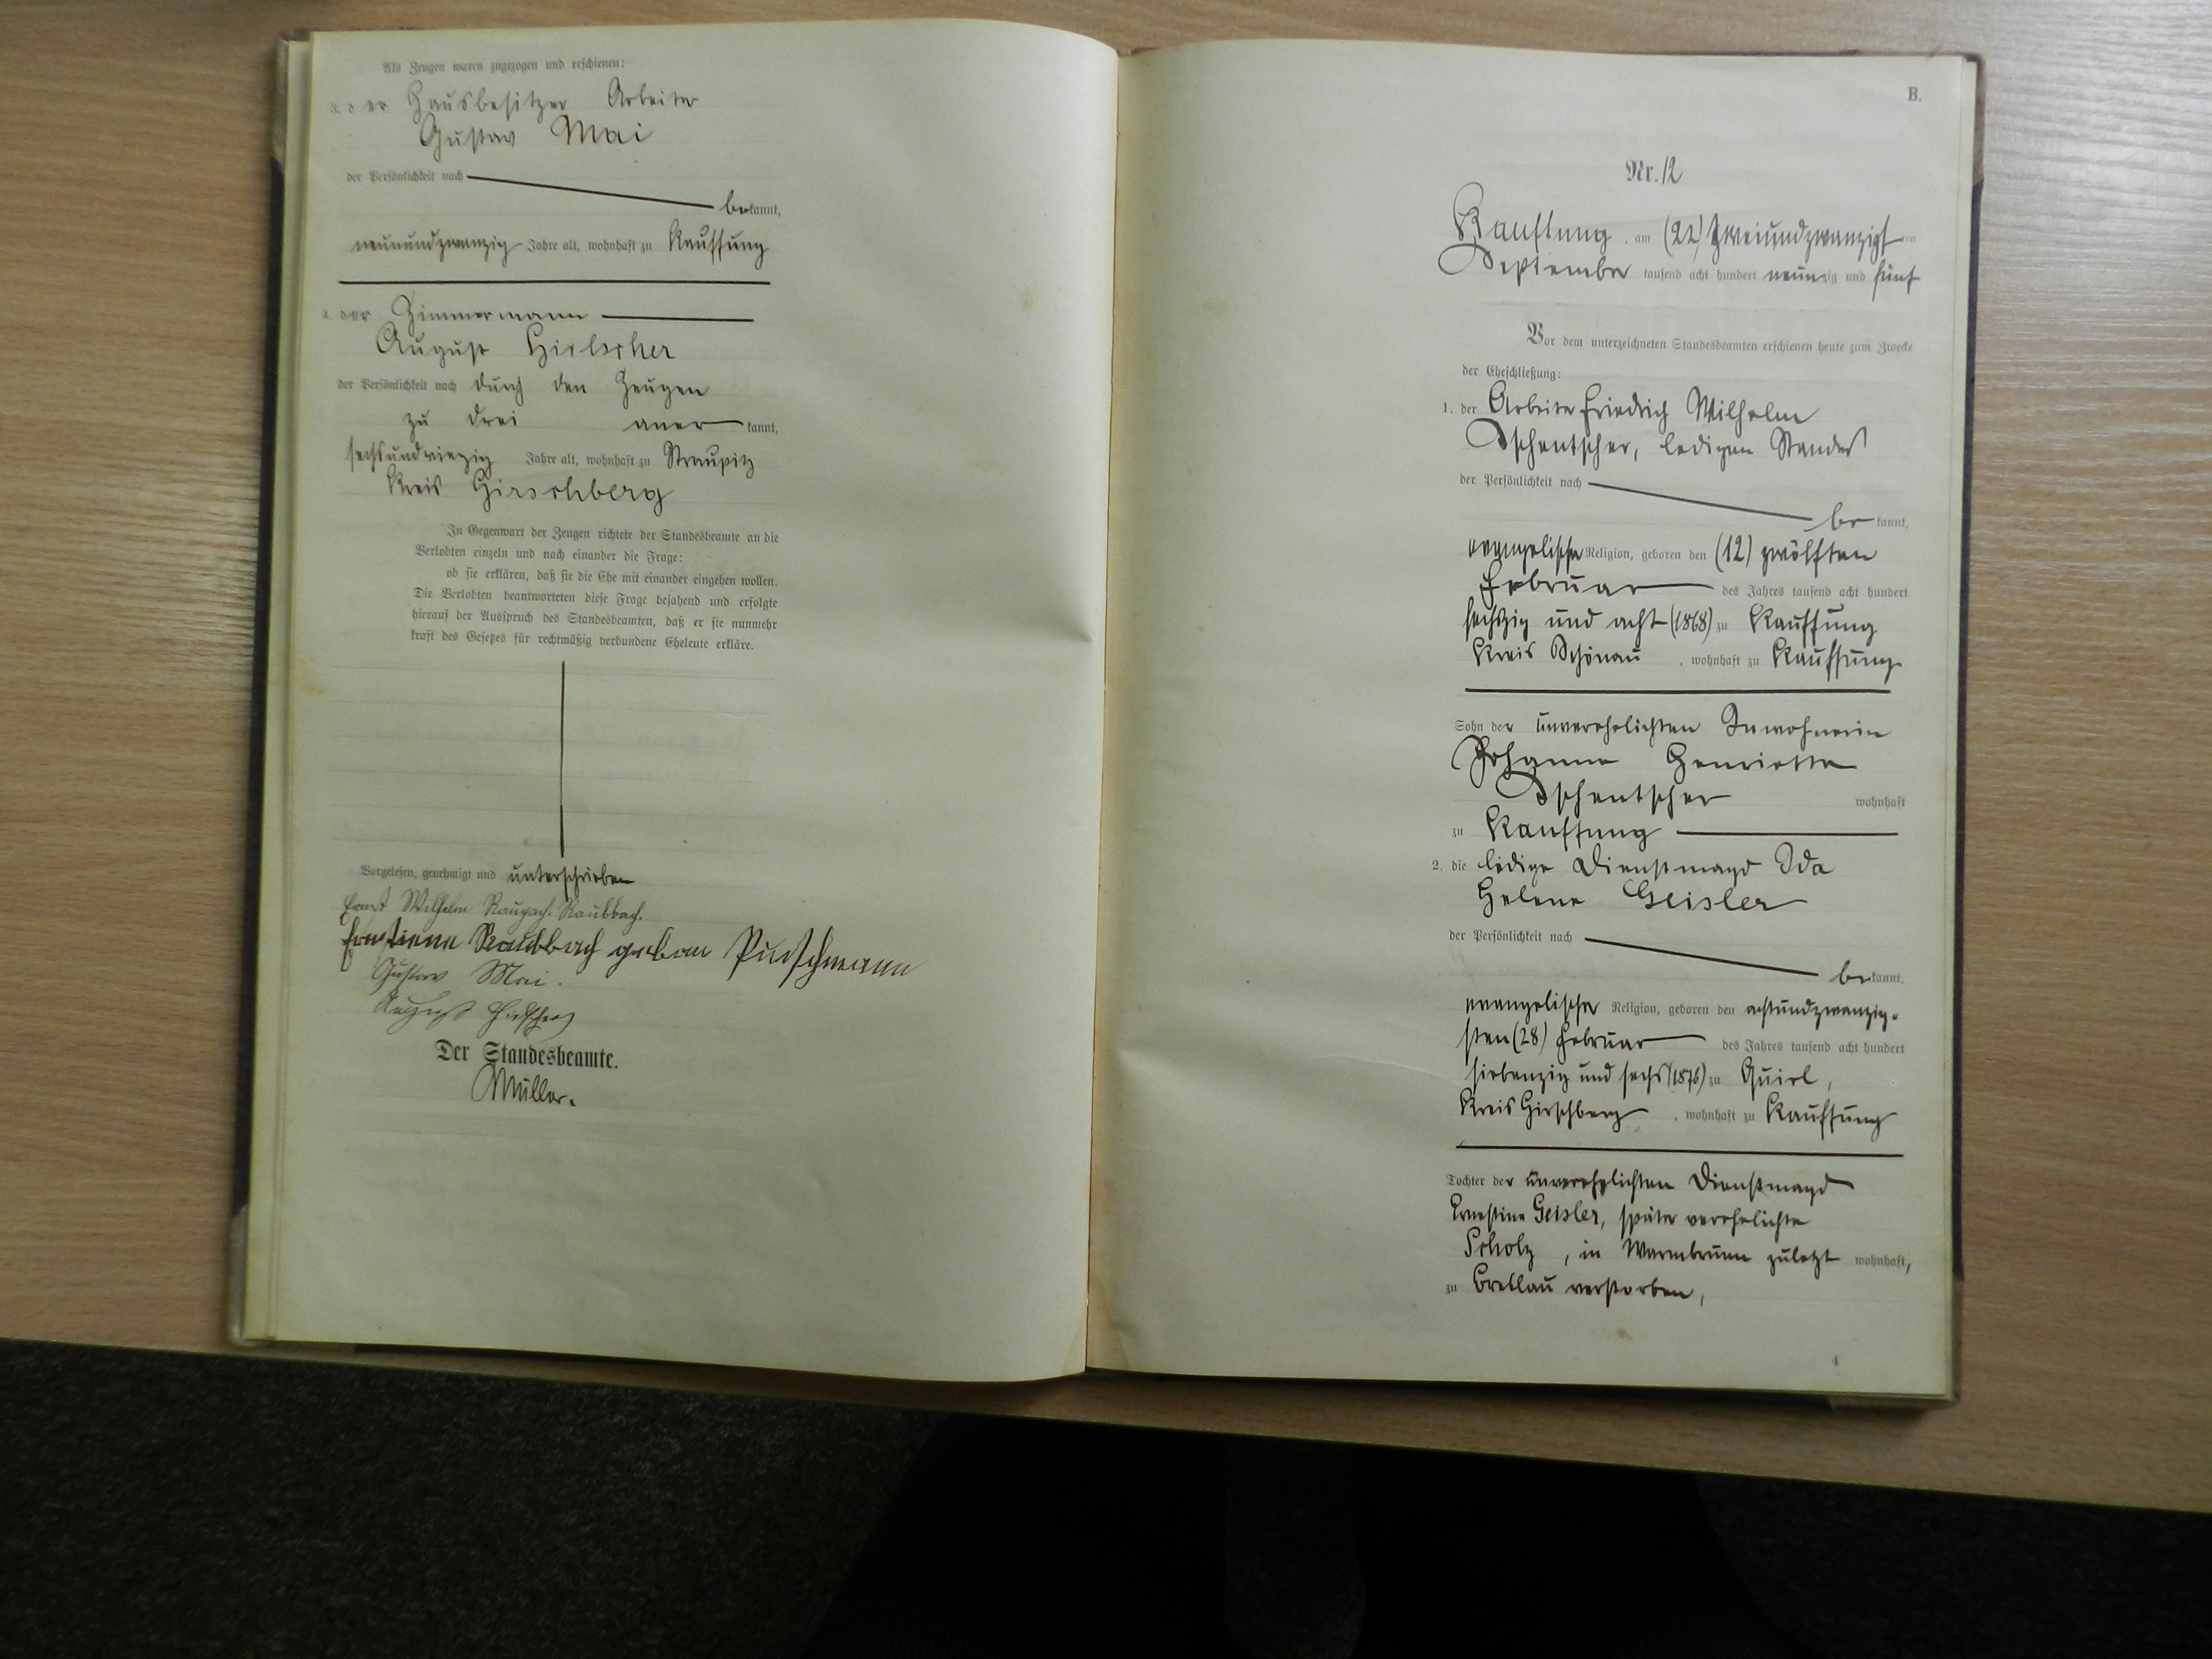 Als Zeugen waren zugezogen und erschienen:
3. der Hausbesitzer Arbeiter
Gustav Mai
der Persönlichkeit nach
bekannt,
neunundzwanzig Jahre alt, wohnhaft zu Kauffung
4. der Zimmermann
August Hielscher
der Persönlichkeit nach durch den Zeugen
zu drei anerkannt,
sechsundvierzig Jahre alt, wohnhaft zu Straupitz
Kreis Hirschberg
In Gegenwart der Zeugen richtete der Standesbeamte an die
Verlobten einzeln und nach einander die Frage:
ob sie erklären, daß sie die Ehe mit einander eingehen wollen.
Die Verlobten beantworteten diese Frage bejahend und erfolgte
hierauf der Ausspruch des Standesbeamten, daß er sie nunmehr
kraft des Gesetzes für rechtmäßig verbundene Eheleute erkläre.
Vorgelesen, genehmigt und unterschrieben
Ernst Wilhelm Raupach. Raubbach.
Ernstiene Raubbach geboren Puschmann
Gustav Mai.
August Hielscher
Der Standesbeamte.
Müller.
B.
Nr. 12
Kauffung, am (22) zweiundzwanzigsten
September tausend acht hundert neunzig und fünf
Vor dem unterzeichneten Standesbeamten erschienen heute zum Zwecke
der Eheschließung:
1. der Arbeiter Friedrich Wilhelm
Tschentscher, ledigen Standes
der Persönlichkeit nach
bekannt,
evangelischer Religion, geboren den (12) zwölften
Februar des Jahres tausend acht hundert
sechszig und acht (1868) zu Kauffung
Kreis Schönau, wohnhaft zu Kauffung
Sohn der unverehelichten Inwohnerin
Johanne Henriette
Tschentscher wohnhaft
zu Kauffung
2. die ledige Dienstmagd Ida
Helene Geisler
der Persönlichkeit nach
bekannt,
evangelischer Religion, geboren den achtundzwanzig-
sten (28) Februar des Jahres tausend acht hundert
siebenzig und sechs (1876) zu Quirl,
Kreis Hirschberg, wohnhaft zu Kauffung
Tochter der unverehelichten Dienstmagd
Ernestine Geisler, später verehelichte
Scholz, in Warmbrunn zuletzt wohnhaft,
zu Breslau verstorben,
4